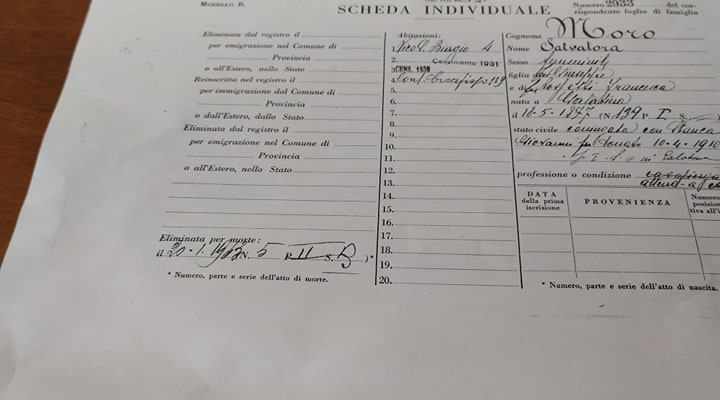 MODELLO B.
SCHEDA INDIVIDUALE
Numero 2933 del cor-
rispondente foglio di famiglia
Eliminata dal registro il
per emigrazione nel Comune di
Provincia
o all'Estero, nello Stato
Reinscritta nel registro il
per immigrazione dal Comune di
Provincia
o dall'Estero, dallo Stato
Eliminata dal registro il
per emigrazione nel Comune di
Provincia
o all'Estero, nello Stato
Eliminata per morte:
il 20-1-1963 N. 5 P. II S. B )*
* Numero, parte e serie dell'atto di morte.
Abitazioni:
Biagio 4
2. Censimento 1931
3. CENS. 1936
5.
6.
7.
8.
9.
10.
11.
12.
13.
14.
15.
16.
17.
18.
19.
20.
Cognome Moro
Nome Salvatora
Sesso femminile
figlia fu Giuseppe
e di Francesca
nata a
il 18-5-1877 (N. 139 P. I S.
stato civile coniugata con
Giovanni fu Donato 10-4-1910
professione o condizione casalinga
attend. a c
DATA
della prima
iscrizione
PROVENIENZA
Numero
posizion
tiva all'
* Numero, parte e serie dell'atto di nascita.